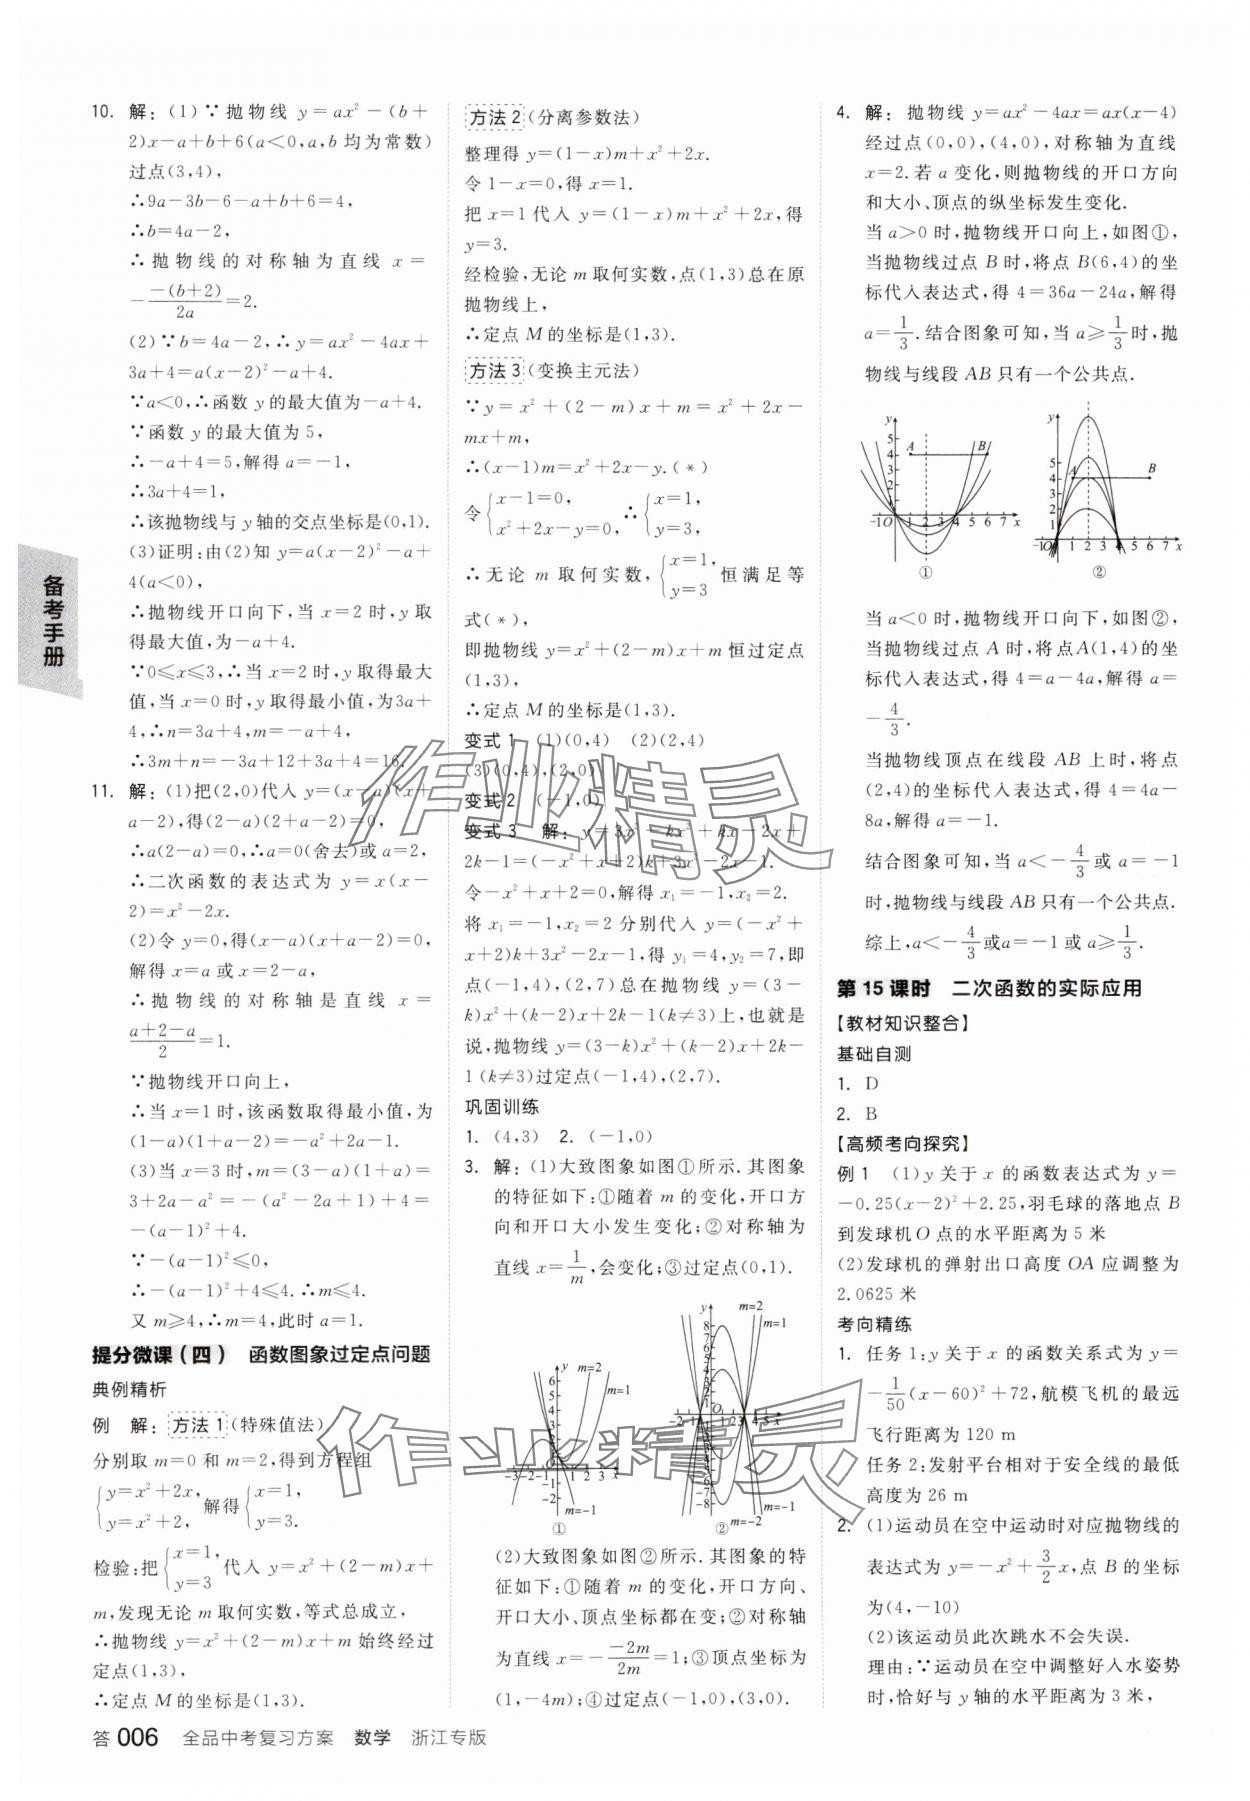 10. 解：(1)∵抛物线 y=ax²-(b+
2)x-a+b+6(a<0,a,b均为常数)
过点(3,4),
∴9a-3b-6-a+b+6=4,
∴b=4a-2,
∴抛物线的对称轴为直线 x=
-\frac{-(b+2)}{2a}=2.
(2)∵b=4a-2,∴y=ax²-4ax+
3a+4=a(x-2)²-a+4.
∵a<0,∴函数 y 的最大值为-a+4.
∵函数 y 的最大值为5,
∴-a+4=5,解得 a=-1,
∴3a+4=1,
∴该抛物线与 y 轴的交点坐标是(0,1).
(3)证明:由(2)知 y=a(x-2)²-a+
4(a<0),
∴抛物线开口向下,当 x=2 时,y 取
得最大值,为-a+4.
∵0≤x≤3,∴当 x=2 时,y 取得最大
值,当 x=0 时,y 取得最小值,为3a+
4,∴n=3a+4,m=-a+4,
∴3m+n=-3a+12+3a+4=16.
11. 解：(1)把(2,0)代入 y=(x-a)(x+
a-2),得(2-a)(2+a-2)=0,
∴a(2-a)=0,∴a=0(舍去)或 a=2,
∴二次函数的表达式为 y=x(x-
2)=x²-2x.
(2)令 y=0,得(x-a)(x+a-2)=0,
解得 x=a 或 x=2-a,
∴抛物线的对称轴是直线 x=
\frac{a+2-a}{2}=1.
∵抛物线开口向上,
∴当 x=1 时,该函数取得最小值,为
(1-a)(1+a-2)=-a²+2a-1.
(3)当 x=3 时,m=(3-a)(1+a)=
3+2a-a²=-(a²-2a+1)+4=
-(a-1)²+4.
∵-(a-1)²≤0,
∴-(a-1)²+4≤4.∴m≤4.
又 m≥4,∴m=4,此时 a=1.
提分微课(四) 函数图象过定点问题
典例精析
例 解：方法1(特殊值法)
分别取 m=0 和 m=2,得到方程组
{y=x²+2x, y=x²+2, 解得 {x=1, y=3.
检验:把 {x=1, y=3 代入 y=x²+(2-m)x+
m,发现无论 m 取何实数,等式总成立,
∴抛物线 y=x²+(2-m)x+m 始终经过
定点(1,3),
∴定点 M 的坐标是(1,3).
方法2(分离参数法)
整理得 y=(1-x)m+x²+2x.
令 1-x=0,得 x=1.
把 x=1 代入 y=(1-x)m+x²+2x,得
y=3.
经检验,无论 m 取何实数,点(1,3)总在原
抛物线上,
∴定点 M 的坐标是(1,3).
方法3(变换主元法)
∵y=x²+(2-m)x+m=x²+2x-
mx+m,
∴(x-1)m=x²+2x-y.(*)
令 {x-1=0, x²+2x-y=0, ∴ {x=1, y=3.
∴无论 m 取何实数, {x=1, y=3 恒满足等
式(*),
即抛物线 y=x²+(2-m)x+m 恒过定点
(1,3),
∴定点 M 的坐标是(1,3).
变式1 (1)(0,4) (2)(2,4)
(3)(0,4),(2,0)
变式2 (-1,0)
变式3 解：y=3x²-kx²+kx-2x+
2k-1=(-x²+x+2)k+3x²-2x-1.
令-x²+x+2=0,解得 x₁=-1,x₂=2.
将 x₁=-1,x₂=2 分别代入 y=(-x²+
x+2)k+3x²-2x-1,得 y₁=4,y₂=7,即
点(-1,4),(2,7)总在抛物线 y=(3-
k)x²+(k-2)x+2k-1(k≠3)上,也就是
说,抛物线 y=(3-k)x²+(k-2)x+2k-
1(k≠3)过定点(-1,4),(2,7).
巩固训练
1. (4,3) 2. (-1,0)
3. 解：(1)大致图象如图①所示.其图象
的特征如下:①随着 m 的变化,开口方
向和开口大小发生变化;②对称轴为
直线 x=\frac{1}{m},会变化;③过定点(0,1).
y m=2 m=1
6 5 4 3 2
-3-2-1 O 1 2 3 x
-1 -2 m=-1
①
y m=2 m=1
8 7 6 5 4 3 2 1
-2-1 O 1 2 3 4 5 x
m=-1 m=-2
②
(2)大致图象如图②所示.其图象的特
征如下:①随着 m 的变化,开口方向、
开口大小、顶点坐标都在变;②对称轴
为直线 x=-\frac{-2m}{2m}=1;③顶点坐标为
(1,-4m);④过定点(-1,0),(3,0).
4. 解：抛物线 y=ax²-4ax=ax(x-4)
经过点(0,0),(4,0),对称轴为直线
x=2.若 a 变化,则抛物线的开口方向
和大小、顶点的纵坐标发生变化.
当 a>0 时,抛物线开口向上,如图①,
当抛物线过点 B 时,将点 B(6,4)的坐
标代入表达式,得 4=36a-24a,解得
a=\frac{1}{3}.结合图象可知,当 a≥\frac{1}{3}时,抛
物线与线段 AB 只有一个公共点.
y 5 4 3 2 1 A B
-1O 1 2 3 4 5 6 7 x
①
y 5 4 3 2 1 A B
-1O 1 2 3 4 5 6 7 x
②
当 a<0 时,抛物线开口向下,如图②,
当抛物线过点 A 时,将点A(1,4)的坐
标代入表达式,得 4=a-4a,解得 a=
-\frac{4}{3}.
当抛物线顶点在线段 AB 上时,将点
(2,4)的坐标代入表达式,得 4=4a-
8a,解得 a=-1.
结合图象可知,当 a<-\frac{4}{3}或 a=-1
时,抛物线与线段 AB 只有一个公共点.
综上,a<-\frac{4}{3}或a=-1 或 a≥\frac{1}{3}.
第15课时 二次函数的实际应用
【教材知识整合】
基础自测
1. D
2. B
【高频考向探究】
例1 (1)y 关于 x 的函数表达式为 y=
-0.25(x-2)²+2.25,羽毛球的落地点 B
到发球机O 点的水平距离为 5 米
(2)发球机的弹射出口高度 OA 应调整为
2.0625 米
考向精练
1. 任务1:y 关于 x 的函数关系式为 y=
-\frac{1}{50}(x-60)²+72,航模飞机的最远
飞行距离为 120 m
任务2:发射平台相对于安全线的最低
高度为 26 m
2. (1)运动员在空中运动时对应抛物线的
表达式为 y=-x²+\frac{3}{2}x,点 B 的坐标
为(4,-10)
(2)该运动员此次跳水不会失误.
理由:∵运动员在空中调整好入水姿势
时,恰好与 y 轴的水平距离为 3 米,
备考手册
答 006 全品中考复习方案 数学 浙江专版
作业精灵
作业精灵